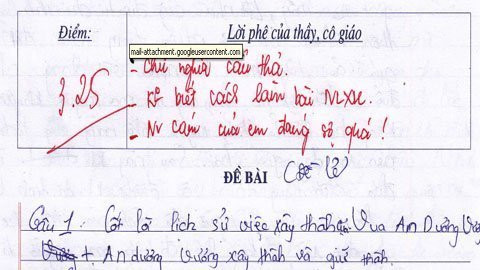 Điểm:
Lời phê của thầy, cô giáo
mail-attachment.googleusercontent.com
3,25
- Chữ nghĩa cẩu thả.
- Ko biết cách làm bài NLXH.
- Nv cám của em đáng sợ quá!
ĐỀ BÀI
Câu 1: Cốt lõi lịch sử việc xây thành của Vua An Dương Vương
+ An dương vương xây thành và giữ thành.